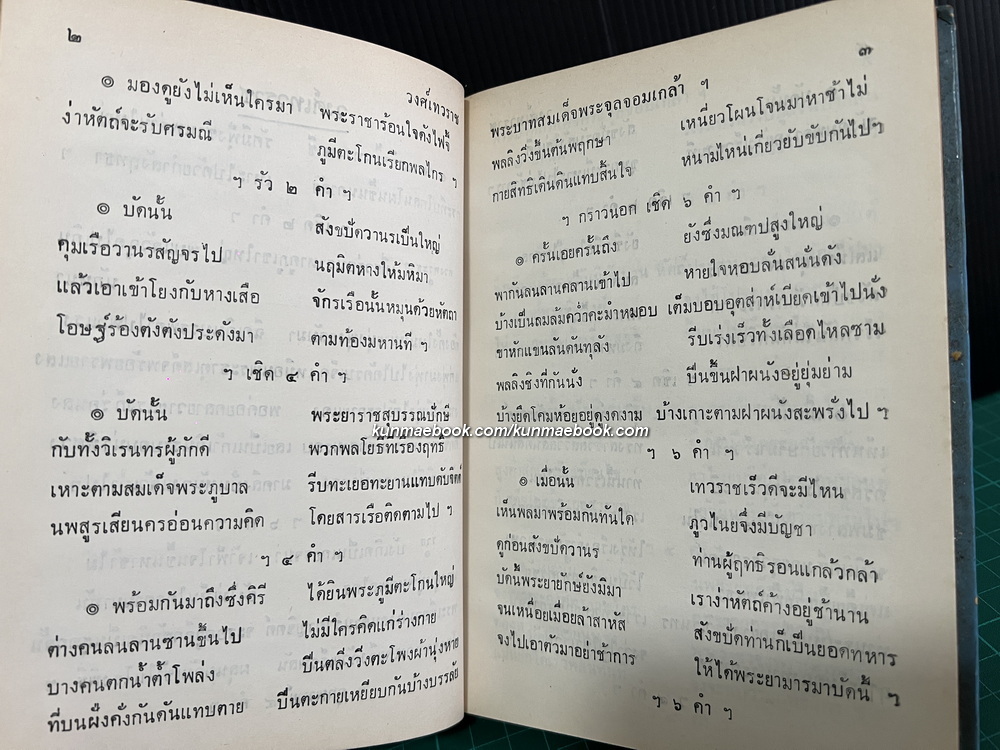 ๒
วงศ์เทวราช
๏ มองดูยังไม่เห็นใครมา พระราชาร้อนใจดังไฟจี้
ง่าหัตถ์จะรับศรมณี ภูมีตะโกนเรียกพลไกร ฯ
ฯ รัว ๒ คำ ฯ
๏ บัดนั้น สังขปัดวานรเป็นใหญ่
คุมเรือวานรสัญจรไป นฤมิตหางให้มหิมา
แล้วเอาเข้าโยงกับหางเสือ จักรเรือนั้นหมุนด้วยหัตถา
โอษฐ์ร้องตังตังประดังมา ตามท้องมหานที ฯ
ฯ เชิด ๔ คำ ฯ
๏ บัดนั้น พระยาราชสุบรรณปักษี
กับทั้งวิเรนทรผู้ภักดี พวกพลโยธีที่เรืองฤทธิ์
เหาะตามสมเด็จพระภูบาล รีบทะเยอทะยานแทบดับจิตต์
นพสูรเสียนครอ่อนความคิด โดยสารเรือติดตามไป ฯ
ฯ ๔ คำ ฯ
๏ พร้อมกันมาถึงซึ่งคิรี ได้ยินพระภูมีตะโกนใหญ่
ต่างคนลนลานซานขึ้นไป ไม่มีใครคิดแก่ร่างกาย
บางคนตกน้ำต้ำโพล่ง ปีนตลึงวึ่งตะโพงผ้านุ่งหาย
ที่บนฝั่งคั่งกันดันแทบตาย ปีนตะกายเหยียบกันบ้างบรรลัย
๓
พระบาทสมเด็จพระจุลจอมเกล้า ฯ
พลลิงวิ่งขึ้นต้นพฤกษา เหนี่ยวโผนโจนมาหาช้าไม่
กายสิทธิเดินดินแทบสิ้นใจ หนามไหน่เกี่ยวยับขับกันไป ฯ
ฯ กราวนอก เชิด ๖ คำ ฯ
๏ ครั้นเอยครั้นถึง ยังซึ่งมณฑปสูงใหญ่
พากันลนลานคลานเข้าไป หายใจหอบลั่นสนั่นดัง
บ้างเป็นลมล้มคว่ำคะมำหมอบ เต็มบอบอุตส่าห์เบียดเข้าไปนั่ง
ขาหักแขนลั่นดันทุลัง รีบเร่งเร็วทั้งเลือดไหลซาม
พลลิงชิงที่กันนั่ง ปีนขึ้นฝาผนังอยู่ยุ่มย่าม
บ้างยึดโคมห้อยอยู่ดูงดงาม บ้างเกาะตามฝาผนังสะพรั่งไป ฯ
ฯ ๖ คำ ฯ
๏ เมื่อนั้น เทวราชเร็วดีจะมีไหน
เห็นพลมาพร้อมกันทันใด ภูวไนยจึ่งมีบัญชา
ดูก่อนสังขปัดวานร ท่านผู้ฤทธิรอนแกล้วกล้า
บัดนี้พระยายักษ์ยังมิมา เราง่าหัตถ์ค้างอยู่ช้านาน
จนเหนื่อยเมื่อยล้าสาหัส สังขปัดท่านก็เป็นยอดทหาร
จงไปเอาตัวมาอย่าช้าการ ให้ได้พระยามารมาบัดนี้ ฯ
ฯ ๖ คำ ฯ
kunmaebook.com/kunmaebook.com